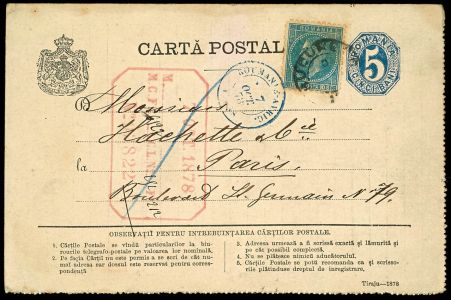 CARTĂ POSTALĂ
ROMANIA
5
CINCI BANI
BUCURE
ROUMANIE
7
OCT
1878
Monsieur
Hachette & Cie
la Paris
Boulevard St. Germain N 79.
OBSERVAȚII PENTRU INTREBUINȚAREA CĂRȚILOR POSTALE.
1. Cărțile Postale se vînd particularilor la biu-
rourile telegrafo-postale pe valoarea lor nominală.
2. Pe fagia Cărții nu este permis a se scri de cât nu-
mai adresa iar dosul este reservat pentru corres-
pondență
3. Adresa urmează a fi scrissă exactă și lămurită și
pe cât posibil completă.
4. Nu se plătesce nimicŭ aducětorului.
5. Cărțile Postale se potŭ recomanda ca și scriso-
rile plătinduse dreptul de inregistrare.
Tiraju—1878